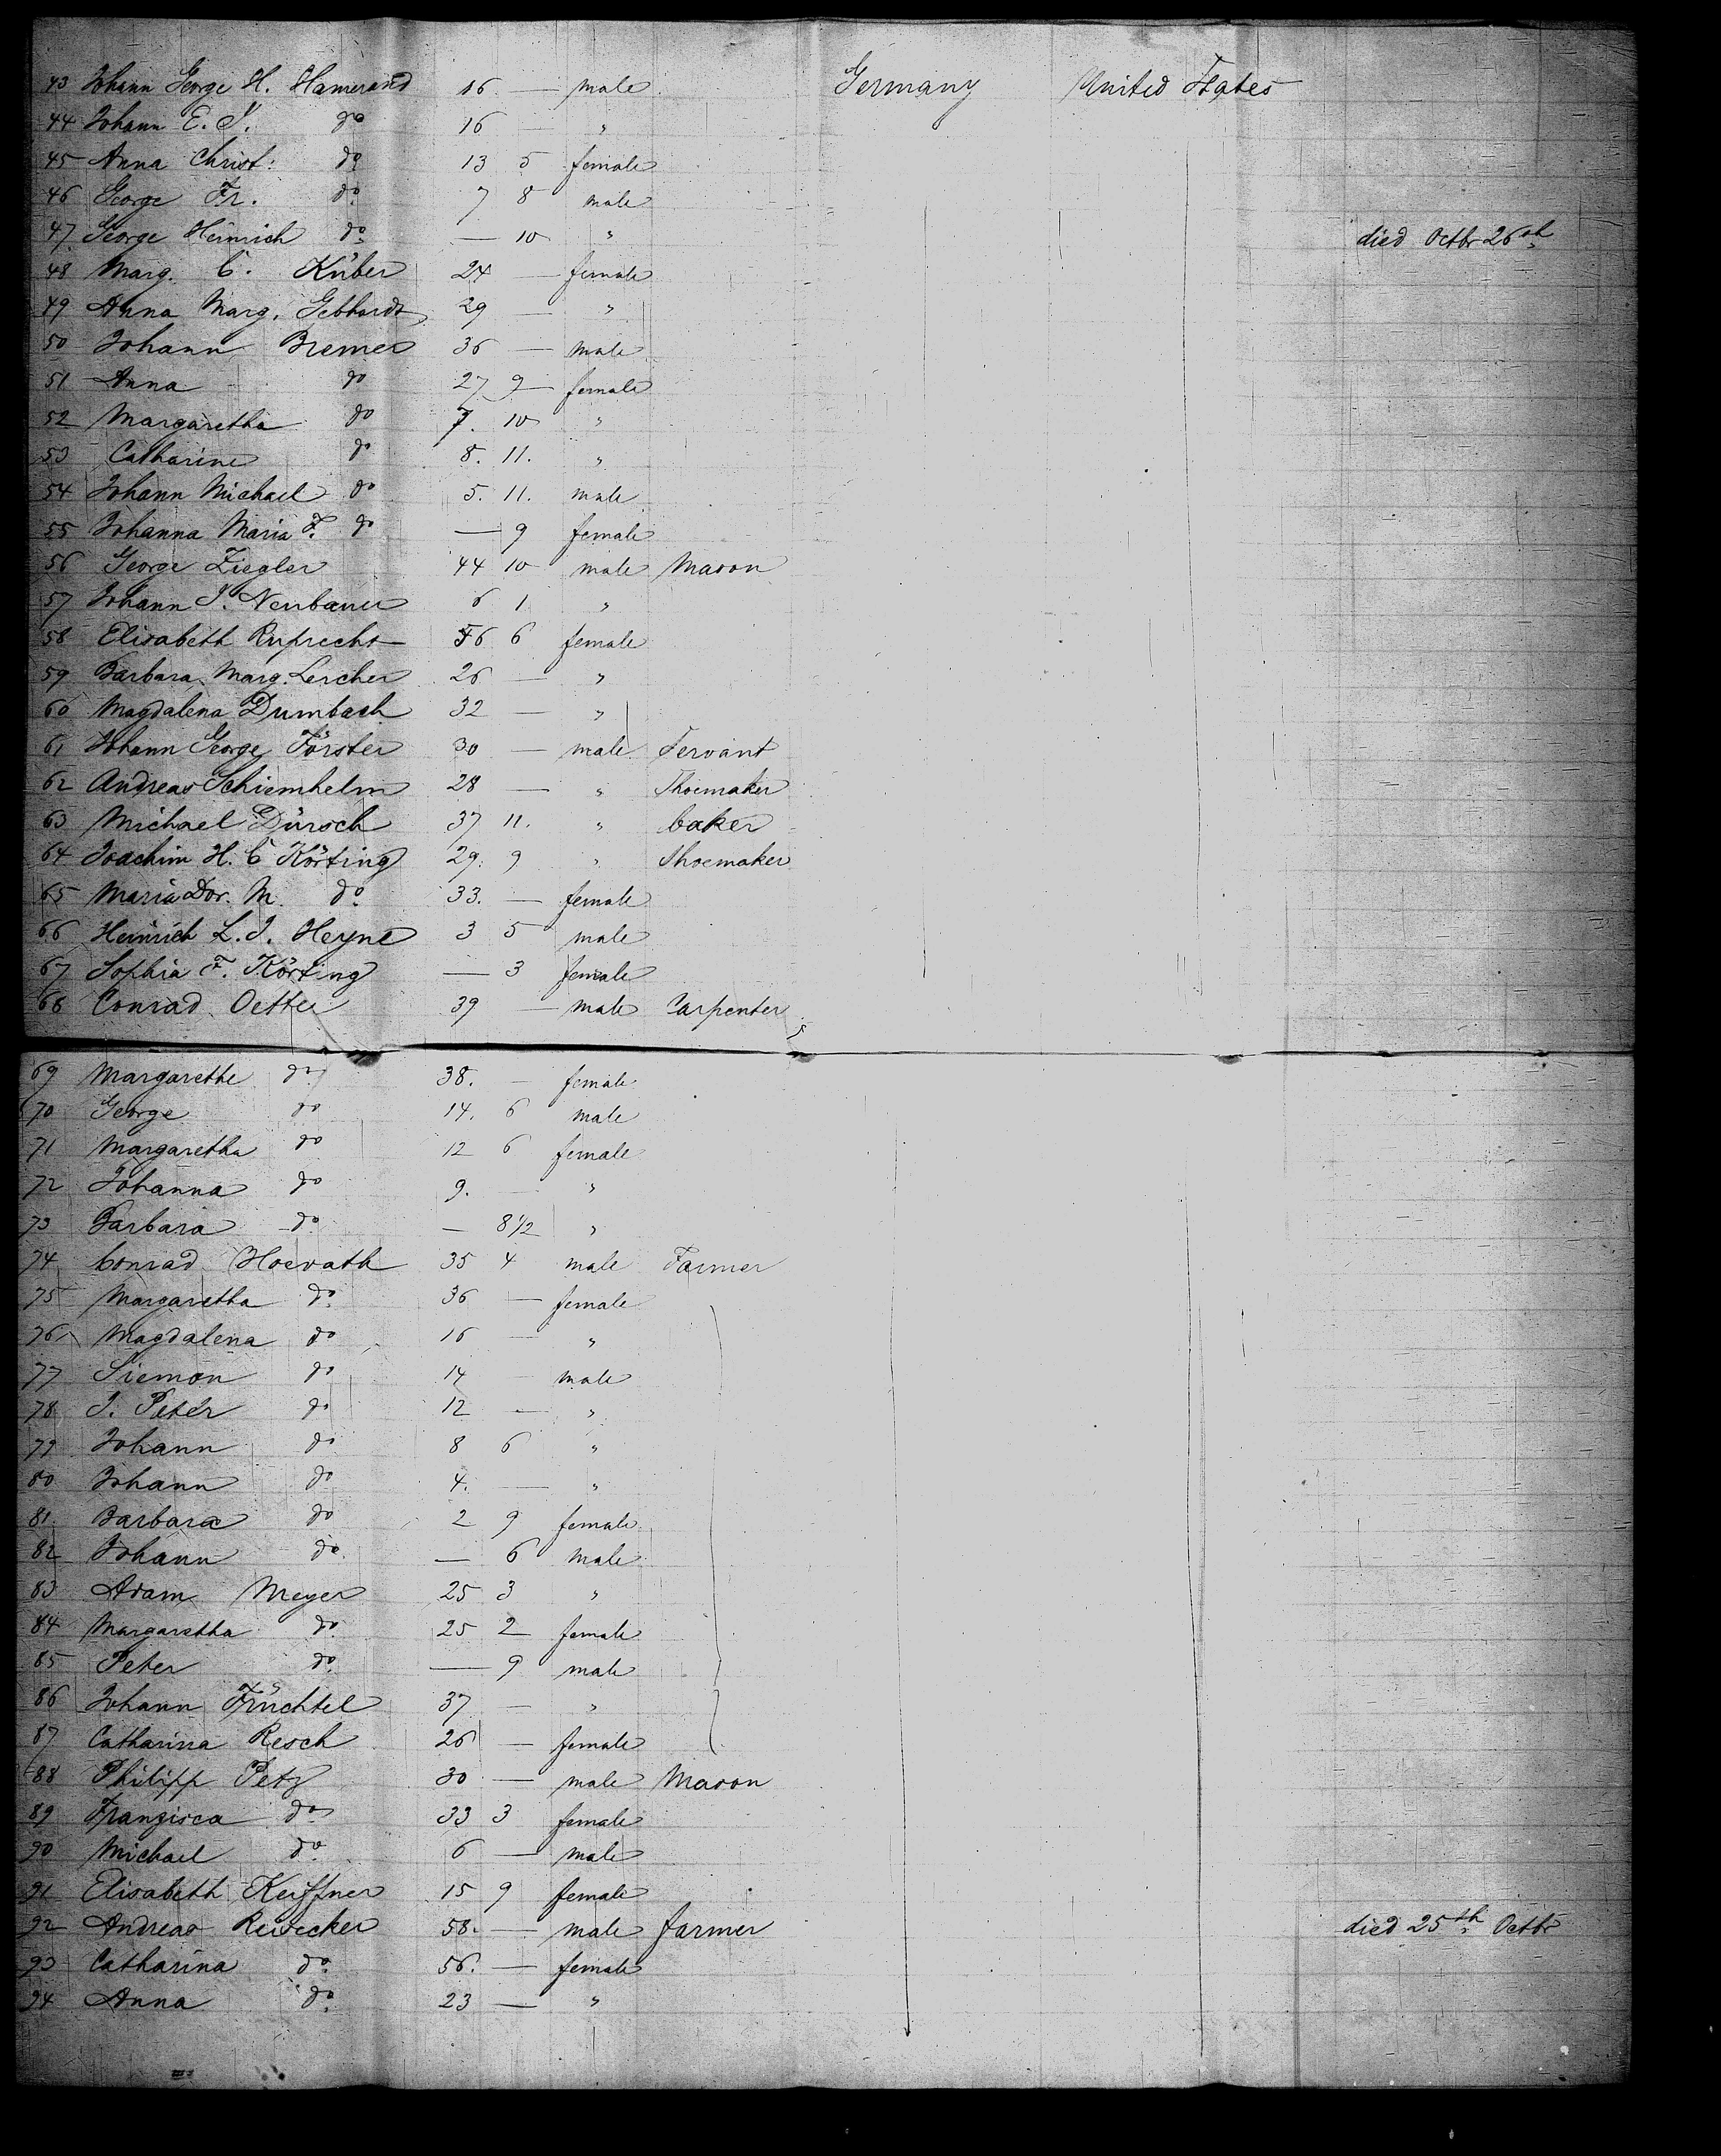 43 Johann George H. Hamerand 16 — male Germany United States
44 Johann E. J. do 16 — "
45 Anna Christ: do 13 5 female
46 George Fr. do 7 8 male
47 George Heinrich do — 10 " died Octbr 26th
48 Marg. C. Küber 24 — female
49 Anna Marg. Gebhardt 29 — "
50 Johann Bremer 36 — male
51 Anna do 27 9 female
52 Margaretha do 7. 10 "
53 Catharine do 8. 11. "
54 Johann Michael do 5. 11. male
55 Johanna Maria F. do — 9 female
56 George Ziegler 44 10 male Mason
57 Johann J. Neubauer 6 1 "
58 Elisabeth Ruprecht 56 6 female
59 Barbara Marg. Lercher 26 — "
60 Magdalena Dumbach 32 — "
61 Johann George Förster 30 — male Servant
62 Andreas Schiemhelm 28 — " Shoemaker
63 Michael Dürsch 37 11. " baker
64 Joachim H. C Körting 29. 9 " Shoemaker
65 Maria Dor. M. do 33. — female
66 Heinrich L. J. Heyne 3 5 male
67 Sophia F. Körting — 3 female
68 Conrad Oetter 39 — male Carpenter
69 Margarethe do 38. — female
70 George do 14. 6 male
71 Margaretha do 12 6 female
72 Johanna do 9. — "
73 Barbara do — 8 1/2 "
74 Conrad Horvath 35 4 male Farmer
75 Margaretha do 36 — female
76 Magdalena do 16 — "
77 Siemon do 14 — male
78 J. Peter do 12 — "
79 Johann do 8 6 "
80 Johann do 4. — "
81. Barbara do 2 9 female
82 Johann do — 6 male
83 Adam Meyer 25 3 "
84 Margaretha do 25 2 female
85 Peter do — 9 male
86 Johann Früchtel 37 — "
87 Catharina Resch 26 — female
88 Philipp Petz 30 — male Mason
89 Franzisca do 33 3 female
90 Michael do 6 — male
91 Elisabeth Keiffner 15 9 female
92 Andreas 58. — male farmer died 25th Octbr
93 Catharina do 56. — female
94 Anna do 23 — "